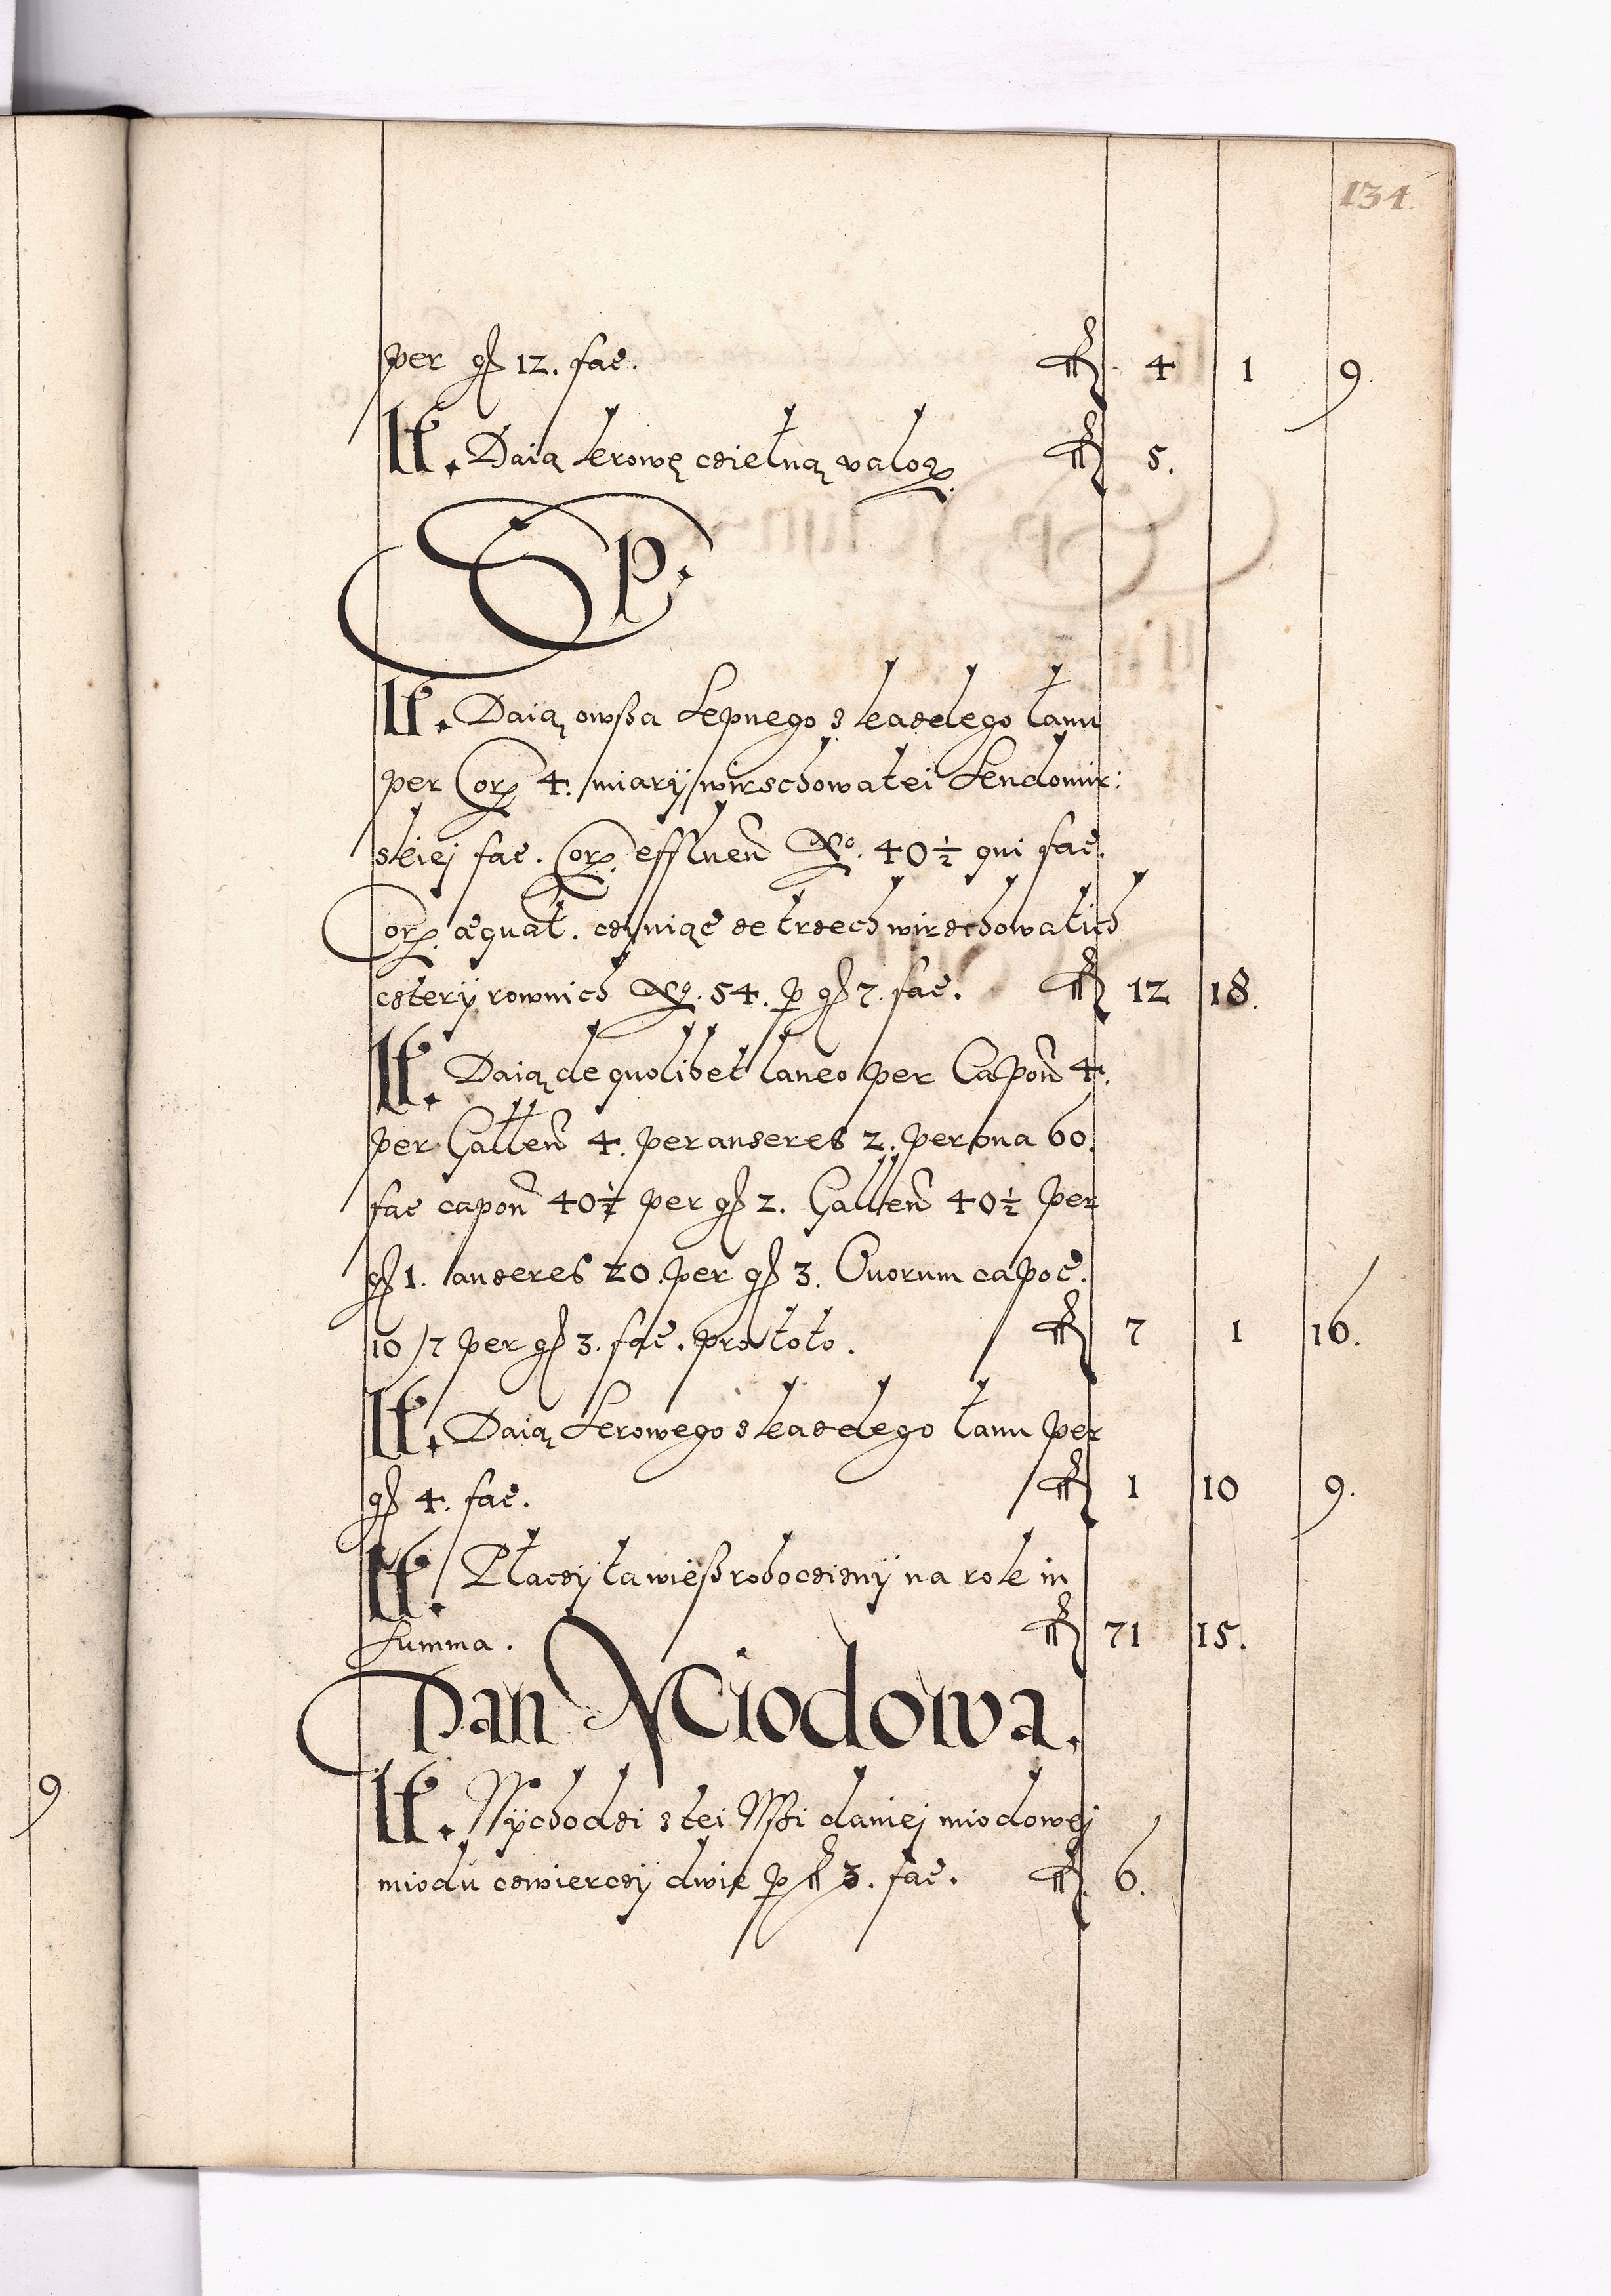 134
per gſ 12. fac. fl 4 1 9.
It. Daią krowę czielną valoꝝ. fl 5.
SP.
It. Daią owßa sepnego z kazdego łanu
per Coꝝ 4. miarÿ wirzchowatei sendomir:
skiej fac. Coꝝ. effluen Nº. 40½ qui fac.
Coꝝ. æquat. czÿniąc ze trzech wirzchowatich
czterÿ rownich Nº. 54. ꝑ gſ 7. fac. fl 12 18.
It. Daią de quolibet laneo per Capon 4.
per Gallen 4. per anseres 2. per ova 60.
fac capon 40½ per gſ 2. Gallen 40½ per
gſ 1. anseres 20. per gſ 3. Ovorum capoc.
10/7 per gſ 3. fac. pro toto. fl 7 1 16.
It. Daią serowego z kazdego łanu per
gſ 4. fac. fl 1 10 9.
It. Płaczÿ ta wieß robocziznÿ na rok in
summa. fl 71 15.
Dan Miodowa.
It. Wÿchodzi z tei Wßi daniej miodowej
miodu czwierczÿ dwie ꝑ fl 3. fac. fl 6.
9